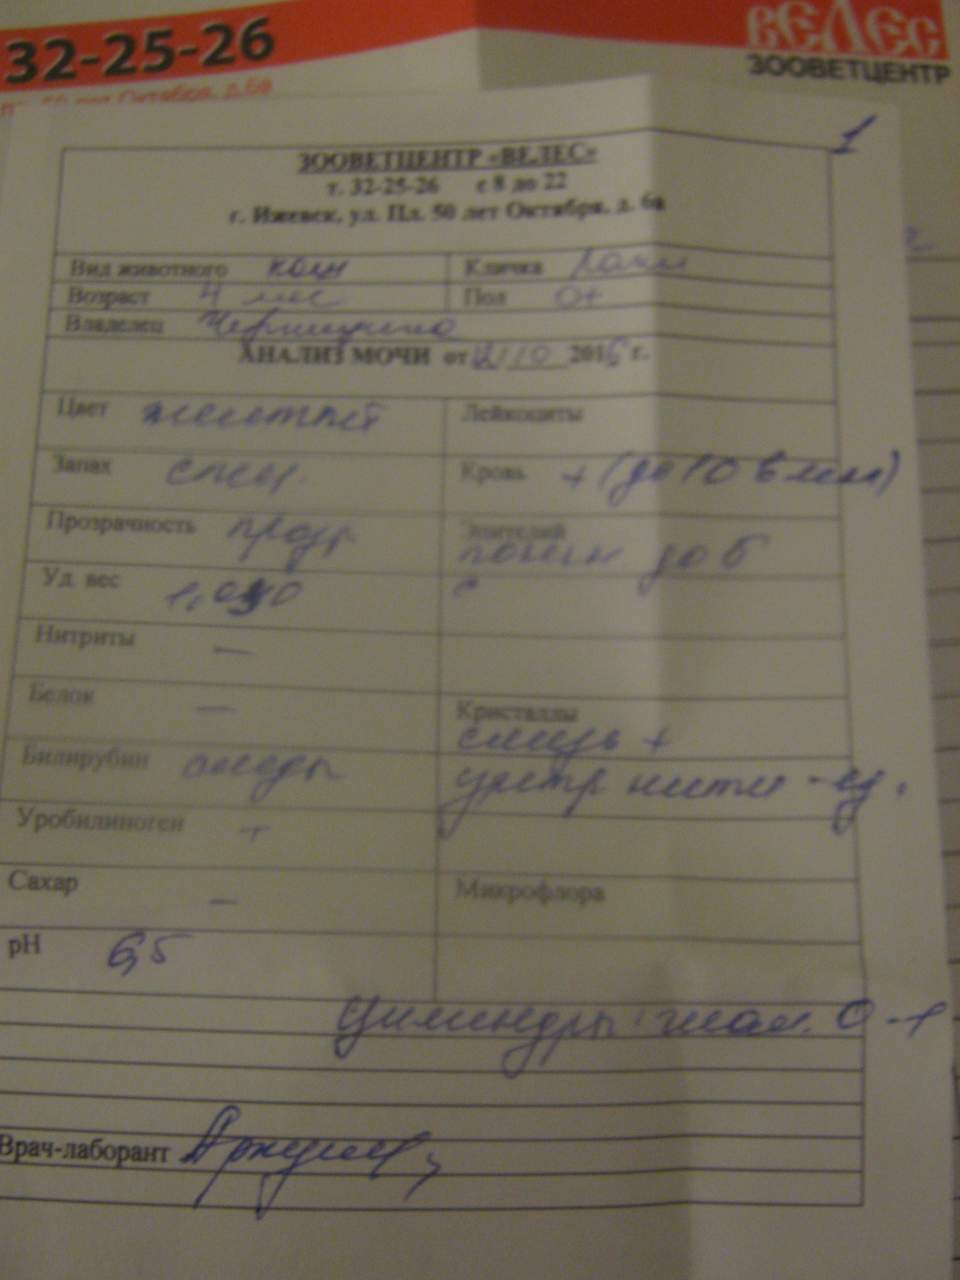 32-25-26
ВЕЛЕС
ЗООВЕТЦЕНТР
50 лет Октября, д.6а
1
ЗООВЕТЦЕНТР «ВЕЛЕС»
т. 32-25-26 с 8 до 22
г. Ижевск, ул. Пл. 50 лет Октября, д. 6а
Вид животного кош
Кличка
Возраст 4 мес
Пол
Владелец
АНАЛИЗ МОЧИ от 10 2015 г.
Цвет желтый
Лейкоциты
Запах спец.
Кровь + (до 10 в мкл)
Прозрачность прозр.
Эпителий
почечн до 5
Уд. вес
Нитриты —
Белок —
Кристаллы
слизь +
Билирубин следы
уретр нити - ед.
Уробилиноген +
Сахар —
Микрофлора
рН 6,5
Цилиндры: гиал. 0-1
Врач-лаборант